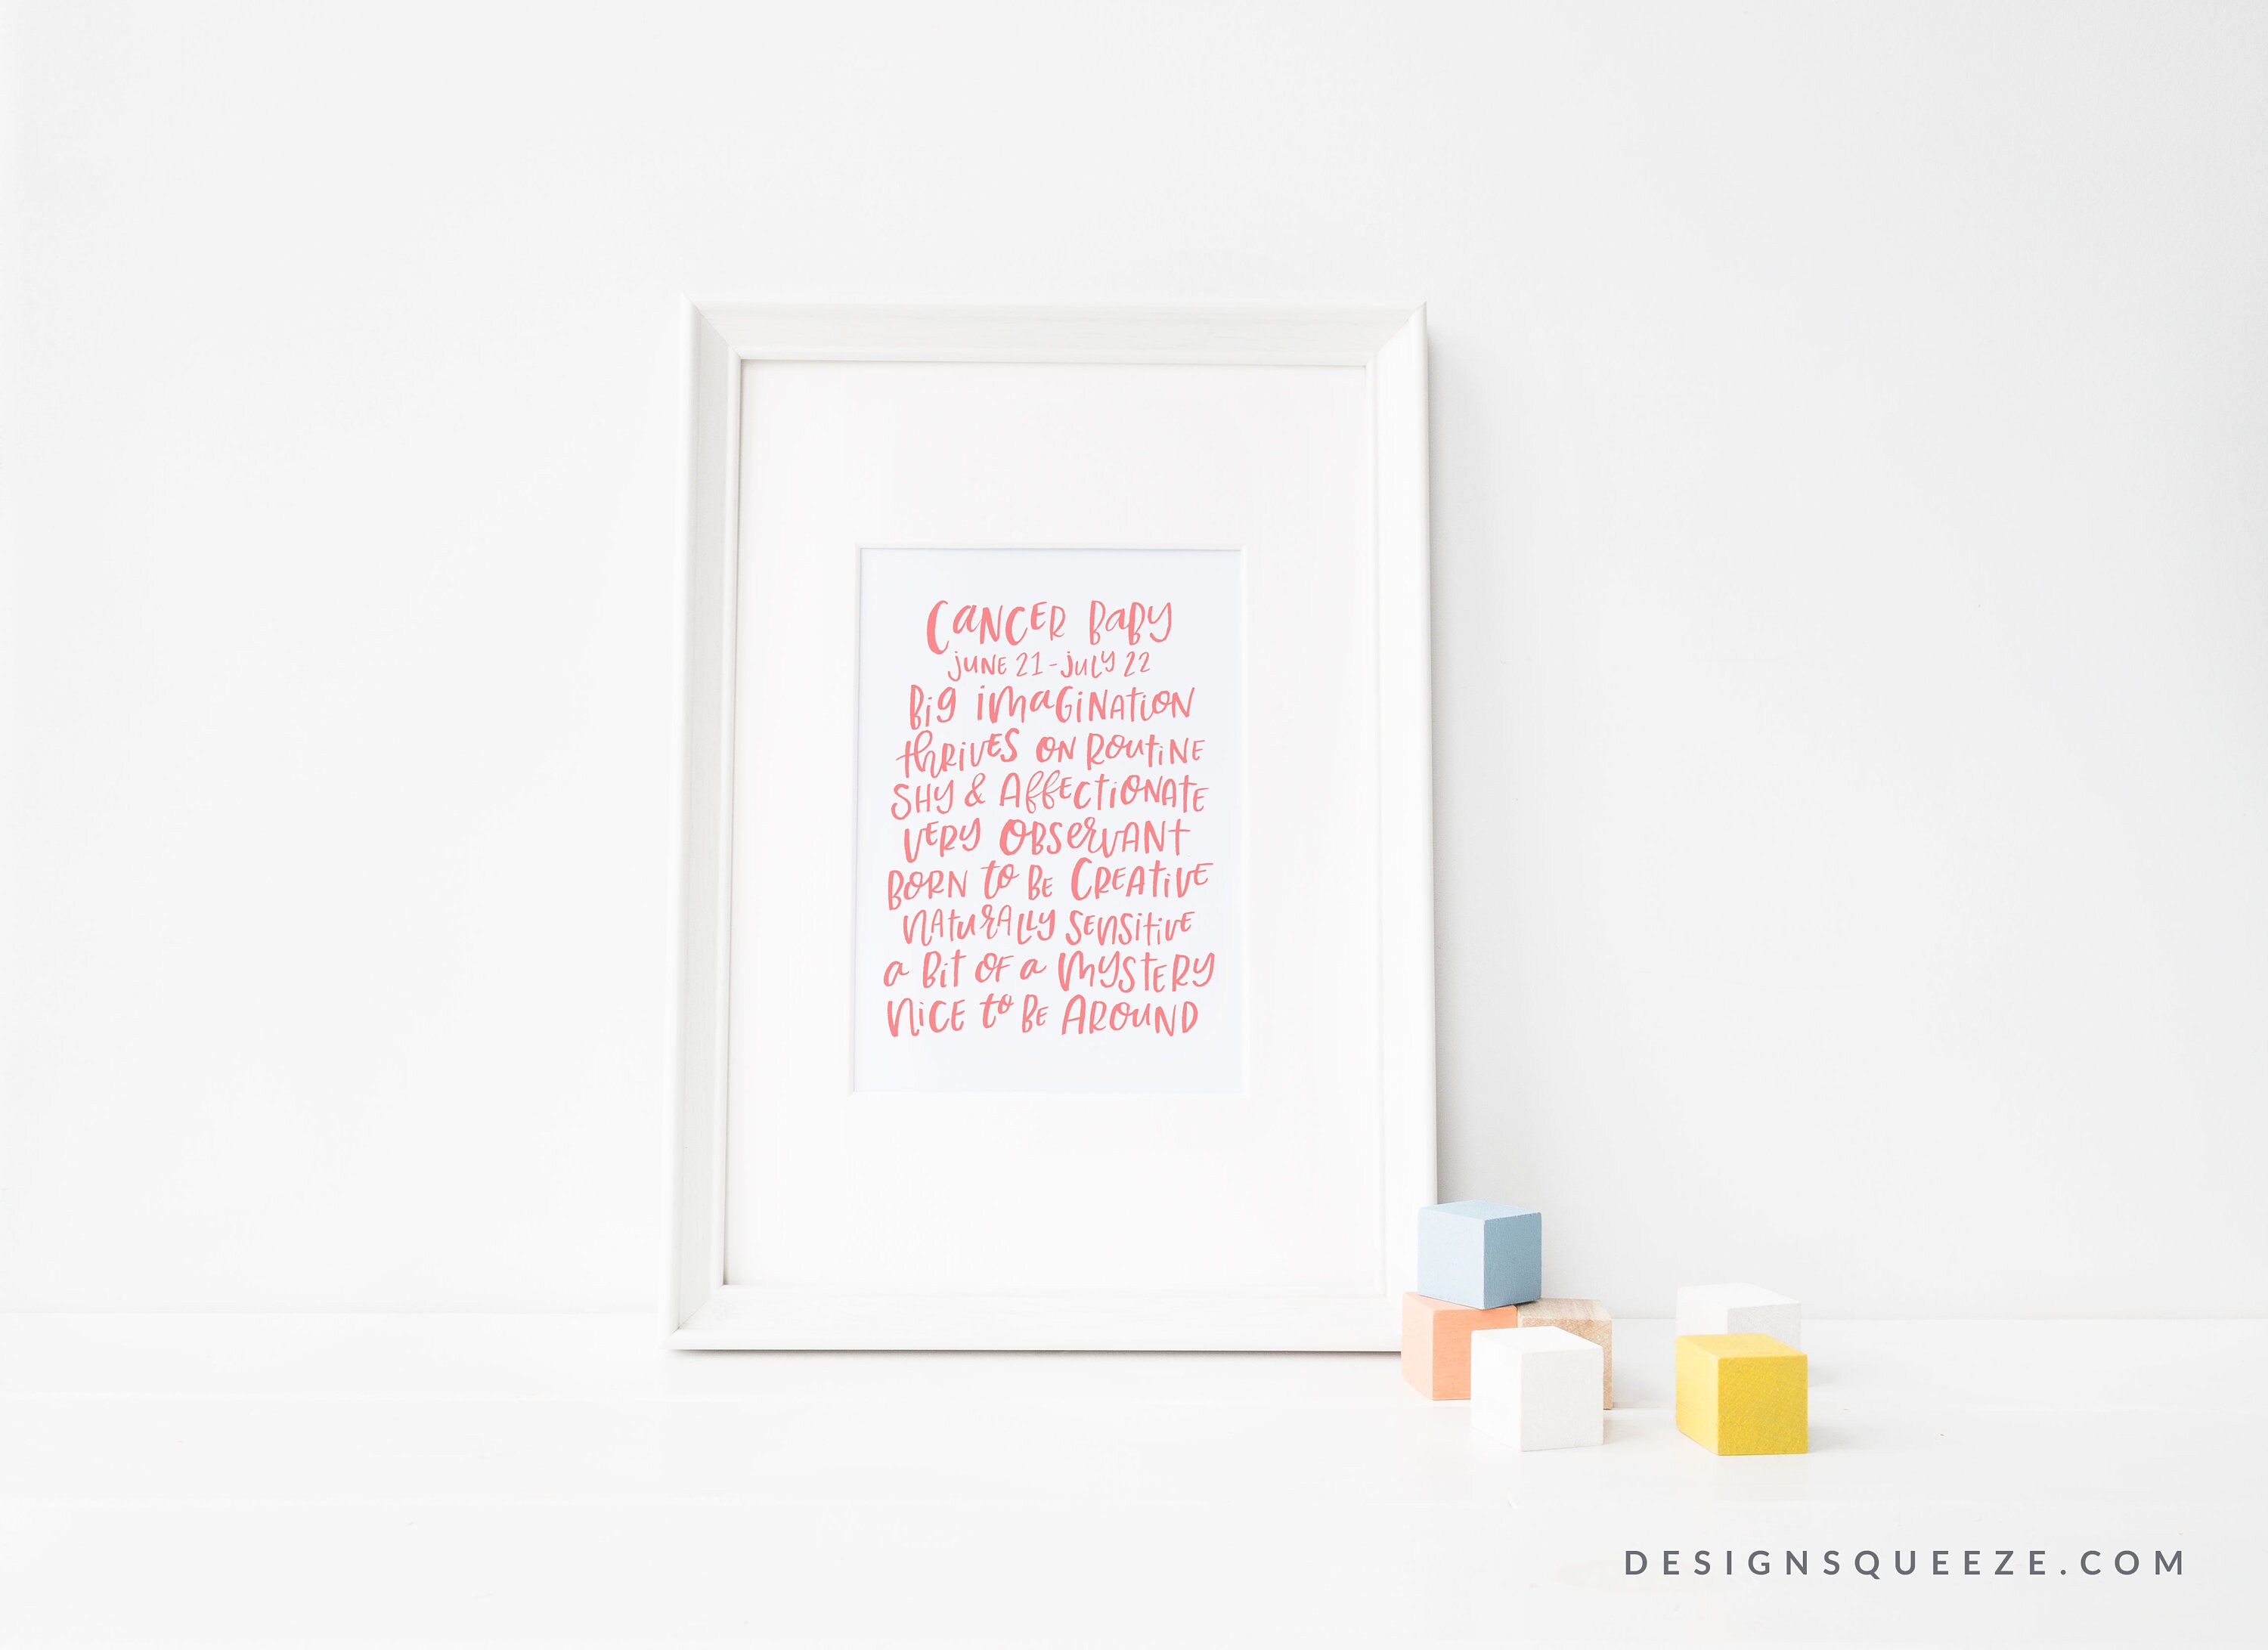 Cancer Baby
june 21 - july 22
Big imagination
thrives on Routine
Shy & Affectionate
very Observant
Born to be Creative
naturally sensitive
a Bit of a mystery
nice to be Around
DESIGNSQUEEZE.COM